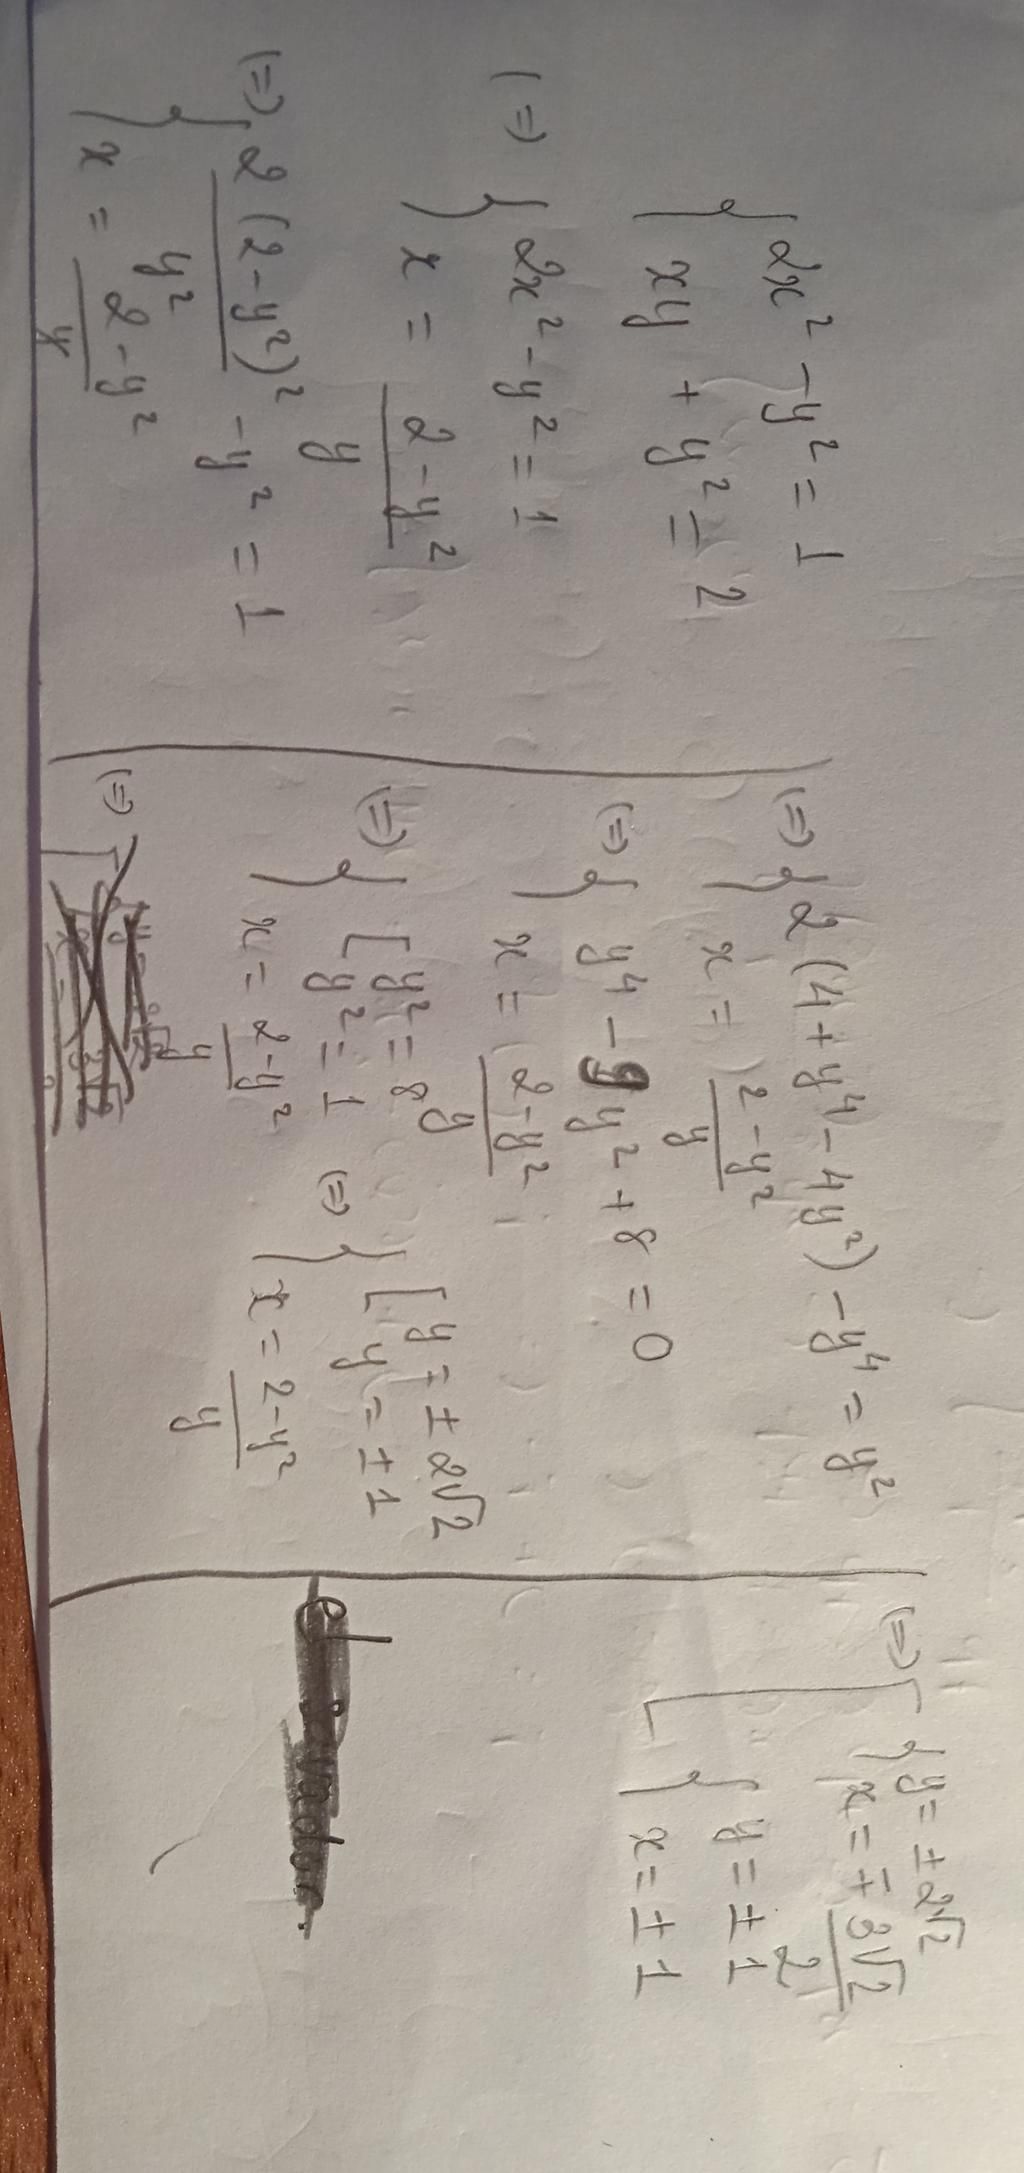 { 2x² - y² = 1
xy + y² = 2
(=) { 2x² - y² = 1
x = (2 - y²)/y
(=) { 2(2 - y²)²/y² - y² = 1
x = (2 - y²)/y
(=) { 2(4 + y⁴ - 4y²) - y⁴ = y²
x = (2 - y²)/y
(=) { y⁴ - 9y² + 8 = 0
x = (2 - y²)/y
(=) { [ y² = 8
y² = 1
x = (2 - y²)/y
(=) { [ y = ± 2√2
y = ± 1
x = (2 - y²)/y
(=)
(=) [ { y = ± 2√2
x = ∓ 3√2/2
{ y = ± 1
x = ± 1